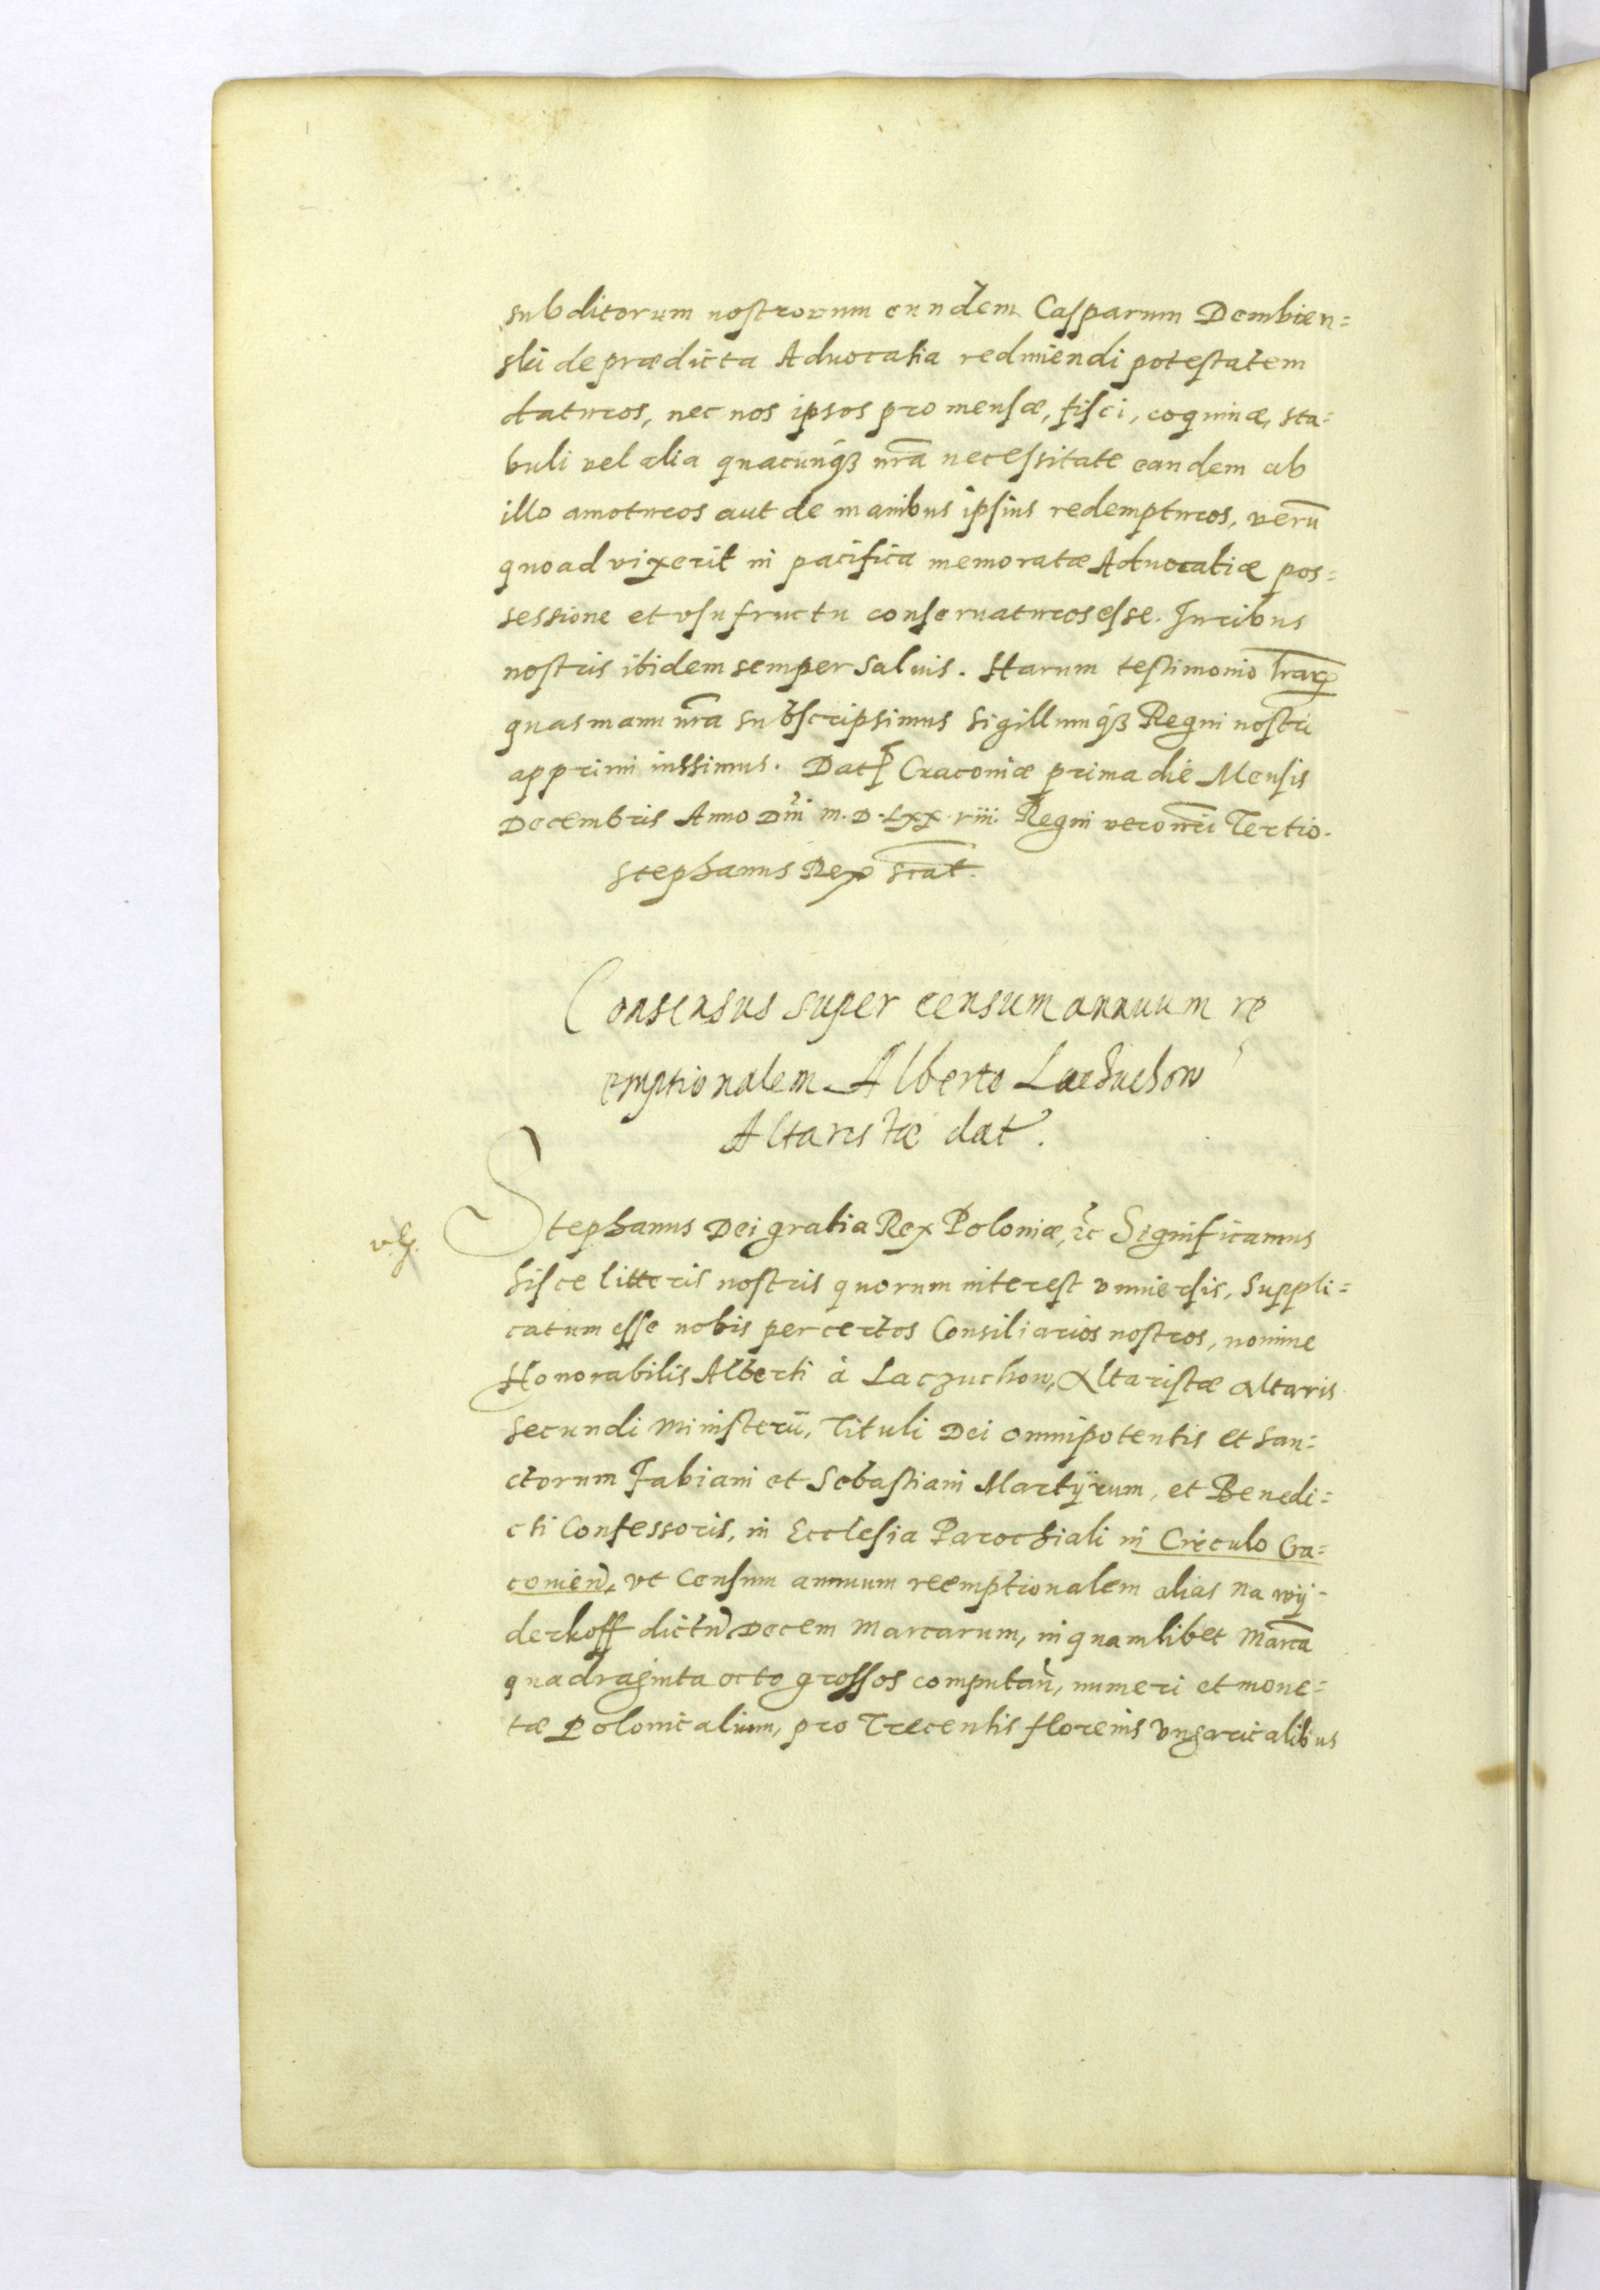 subditorum nostrorum eundem Casparum Dembien=
skii de prædicta Aduocatia redimendi potestatem
daturos, nec nos ipsos pro mensæ, fisci, coquinæ, sta=
buli vel alia quacunqȝ nrã necessitate eandem ab
illo amoturos aut de manibus ipsius redempturos, verũ
quoad vixerit in pacifica memoratæ Aduocatiæ pos=
sessione et vsufructu conseruaturos esse. Iuribus
nostris ibidem semper saluis. Harum testimonio lrarꝝ
quas manu nrã subscripsimus sigillumqȝ Regni nostri
apprimi iussimus. Dat Cracouiæ prima die Mensis
Decembris Anno Dñi M.D.LXX.viii. Regni vero nrĩ Tertio.
Stephanus Rex sraat.
Consensus super censum annuum re
emptionalem Alberto Laczuchow
Altaristæ dat.
Stephanus Dei gratia Rex Poloniæ, &c Significamus
hisce litteris nostris quorum interest vniuersis, Suppli=
catum esse nobis per certos Consiliarios nostros, nomine
Honorabilis Alberti à Laczuchow, Altaristæ altaris
secundi Ministerii, Tituli Dei omnipotentis et San=
ctorum Fabiani et Sebastiani Martÿrum, et Benedi=
cti Confessoris, in Ecclesia Parochiali in Circulo Cra=
couien, vt Censum annuum reemptionalem alias na wÿ=
derkoff dictũ Decem Marcarum, in quamlibet Marcã
quadraginta octo grossos computañ, numeri et mone=
tæ Polonicalium, pro Trecentis florenis Vngaricalibus